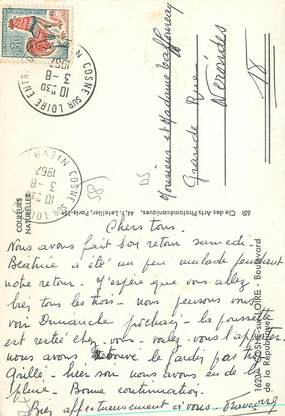 Chers tous.
Nous avons fait bon retour samedi.
Béatrice a été un peu malade pendant
notre retour. J'espère que vous allez
bien tous les trois. nous pensons vous
voir Dimanche prochain. la poussette
est restée chez vous. voulez vous l'apporter.
nous avons retrouvé le jardin pas trop
grillé. hier soir nous avons eu de la
pluie. Bonne continuation.
Bien affectueusement à vous.
Monsieur et Madame
Grande Rue
Nérondes
18
0,30
COSNE SUR LOIRE NIEVRE
10 H 30
3-8
1967
COSNE SUR LOIRE NIEVRE
10 H 30
3-8
1967
COULEURS
NATURELLES
Cie des Arts Photomécaniques, 44, r. Letellier, Paris-15e
LOIRE - Boulevard
de la République